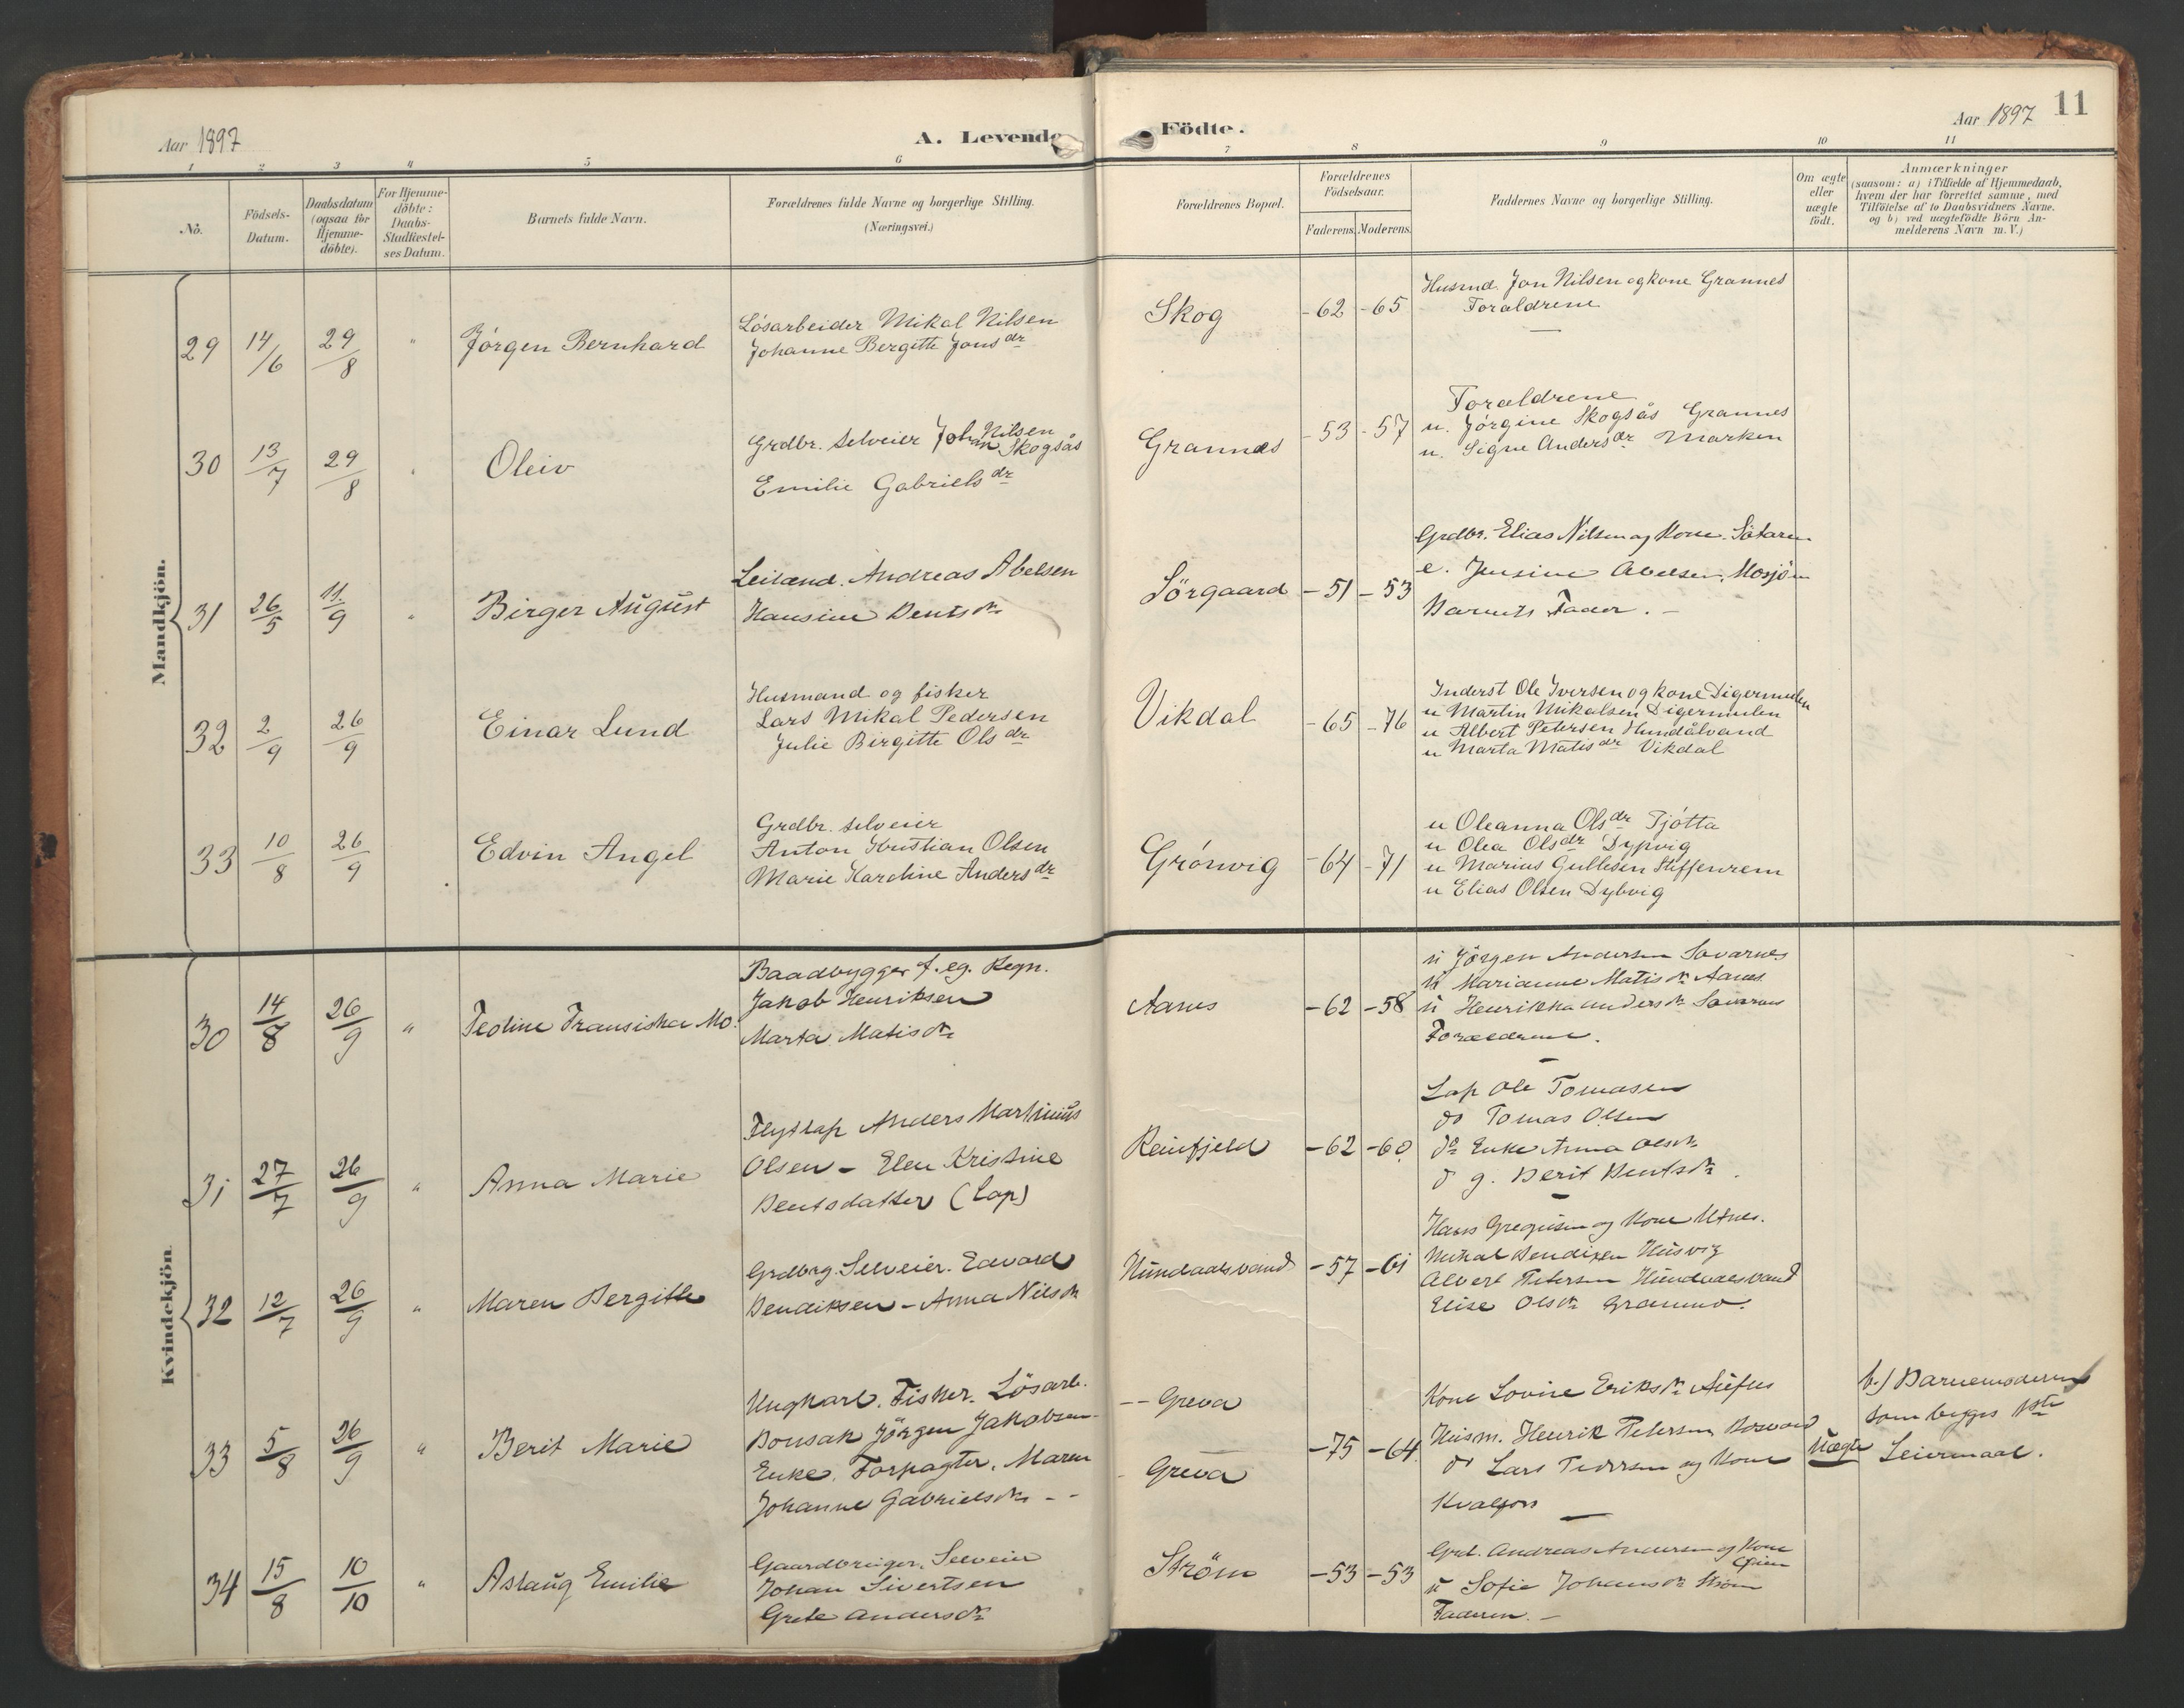 Aar 1897
A. Levende
Födte.
Aar 1897
11
1
2
3
4
5
6
7
8
9
10
11
No.
Födsels-
Datum.
Daabsdatum
(ogsaa for
Hjemme-
döbte).
For Hjemme-
döbte:
Daabs-
Stadfæstel-
ses Datum.
Barnets fulde Navn.
Forældrenes fulde Navne og borgerlige Stilling.
(Næringsvei.)
Forældrenes Bopæl.
Forældrenes
Födselsaar.
Faderens.
Moderens.
Faddernes Navne og borgerlige Stilling.
Om ægte
eller
uægte
födt.
Anmærkninger
(saasom: a) i Tilfælde af Hjemmedaab,
hvem der har forrettet samme, med
Tilföielse af to Daabsvidners Navne.
og b) ved uægtefödte Börn An-
melderens Navn m. V.)
Mandkjön.
29
14/6
29/8
"
Jörgen Bernhard
Lösarbeider Mikal Nilsen
Johanne Bergitte Jonsdr
Skog
-62
-65
Husmd. Jon Nilsen og kone Grannes
Forældrene
30
13/7
29/8
"
Oleiv
Grdbr. selveier Johan Nilsen
Skogsås
Emilie Gabrielsdr
Grannes
-53
-57
Forældrene
u. Jørgine Skogsås Grannes
u. Signe Andersdr Marken
31
26/5
11./9
"
Birger August
Leilænd. Andreas Abelsen
Hansine Bentsdr
Sörgaard
-51
-53
Grdbr. Elias Nilsen og Kone
e. Jensine Abelsen, Mosjøen
Barnets Fader.
32
2/9
26/9
Einar Lund
Husmand og fisker
Lars Mikal Pedersen
Julie Birgitte Olsdr
Vikdal
-65
-76
Inderst Ole Iversen og kone Digermulen
u Martin Mikalsen Digermulen
u Albert Petersen Hundålvand
u Marta Matisdr Vikdal
33
10/8
26/9
Edvin Angel
Grdbr. selveier
Anton Kristian Olsen
Marie Karoline Andersdr
Grönvig
-64
-71
u Oleanna Olsdr Tjötta
u Olea Olsdr Dypvig
u Marius Gullesen
u Elias Olsen Dybvig
Kvindekjön
30
14/8
26/9
"
Teoline Fransiska Mo.
Baadbygger f. eg. Regn.
Jakob Henriksen
Marta Matisdr
Aanes
-62
-58
u Jörgen Andersen
u Marianne Matisdr Aanes
u Henrikka Andersdr
Forældrene.
31
27/7
26/9
"
Anna Marie
Flytlap Anders Martinius
Olsen - Elen Kristine
Bentsdatter (Lap)
Reinfjeld
-62
-60
Lap Ole Tomasen
do Tomas Olsen
do Enke Anna Olsdr
d g. Berit Bentsdr.
32
12/7
26/9
"
Maren Bergitte
Grdbrg. Selveier. Edvard
Bendiksen - Anna Nilsdr
Hundaalsvand
-57
-61
Hans Gregusen og Kone Utnes.
Mikal Bendixen Husvig
Albert Petersen Hundaalsvand
Elise Olsdr
33
5/8
26/9
"
Berit Marie
Ungkarl. Fisker. Lösarb.
Bonsak Jörgen Jakobsen
Enke, Forpagter, Maren
Johanne Gabrielsdr - -
-- Greva
- Greva
-75
-64.
Kone Lovise Eriksdr
Husm. Henrik Petersen
do Lars Pedersen og Kone
Uægte
b.) Barnemoderen
som
Leiermaal.
34
15/8
10/10
"
Aslaug Emilie
Gaardbruger, Selveier
Johan Sivertsen
Grete Andersdr
Ström
-53
-53
Grd. Andreas Andersen og Kone
u Sofie Johansdr Ström
Faderen. -